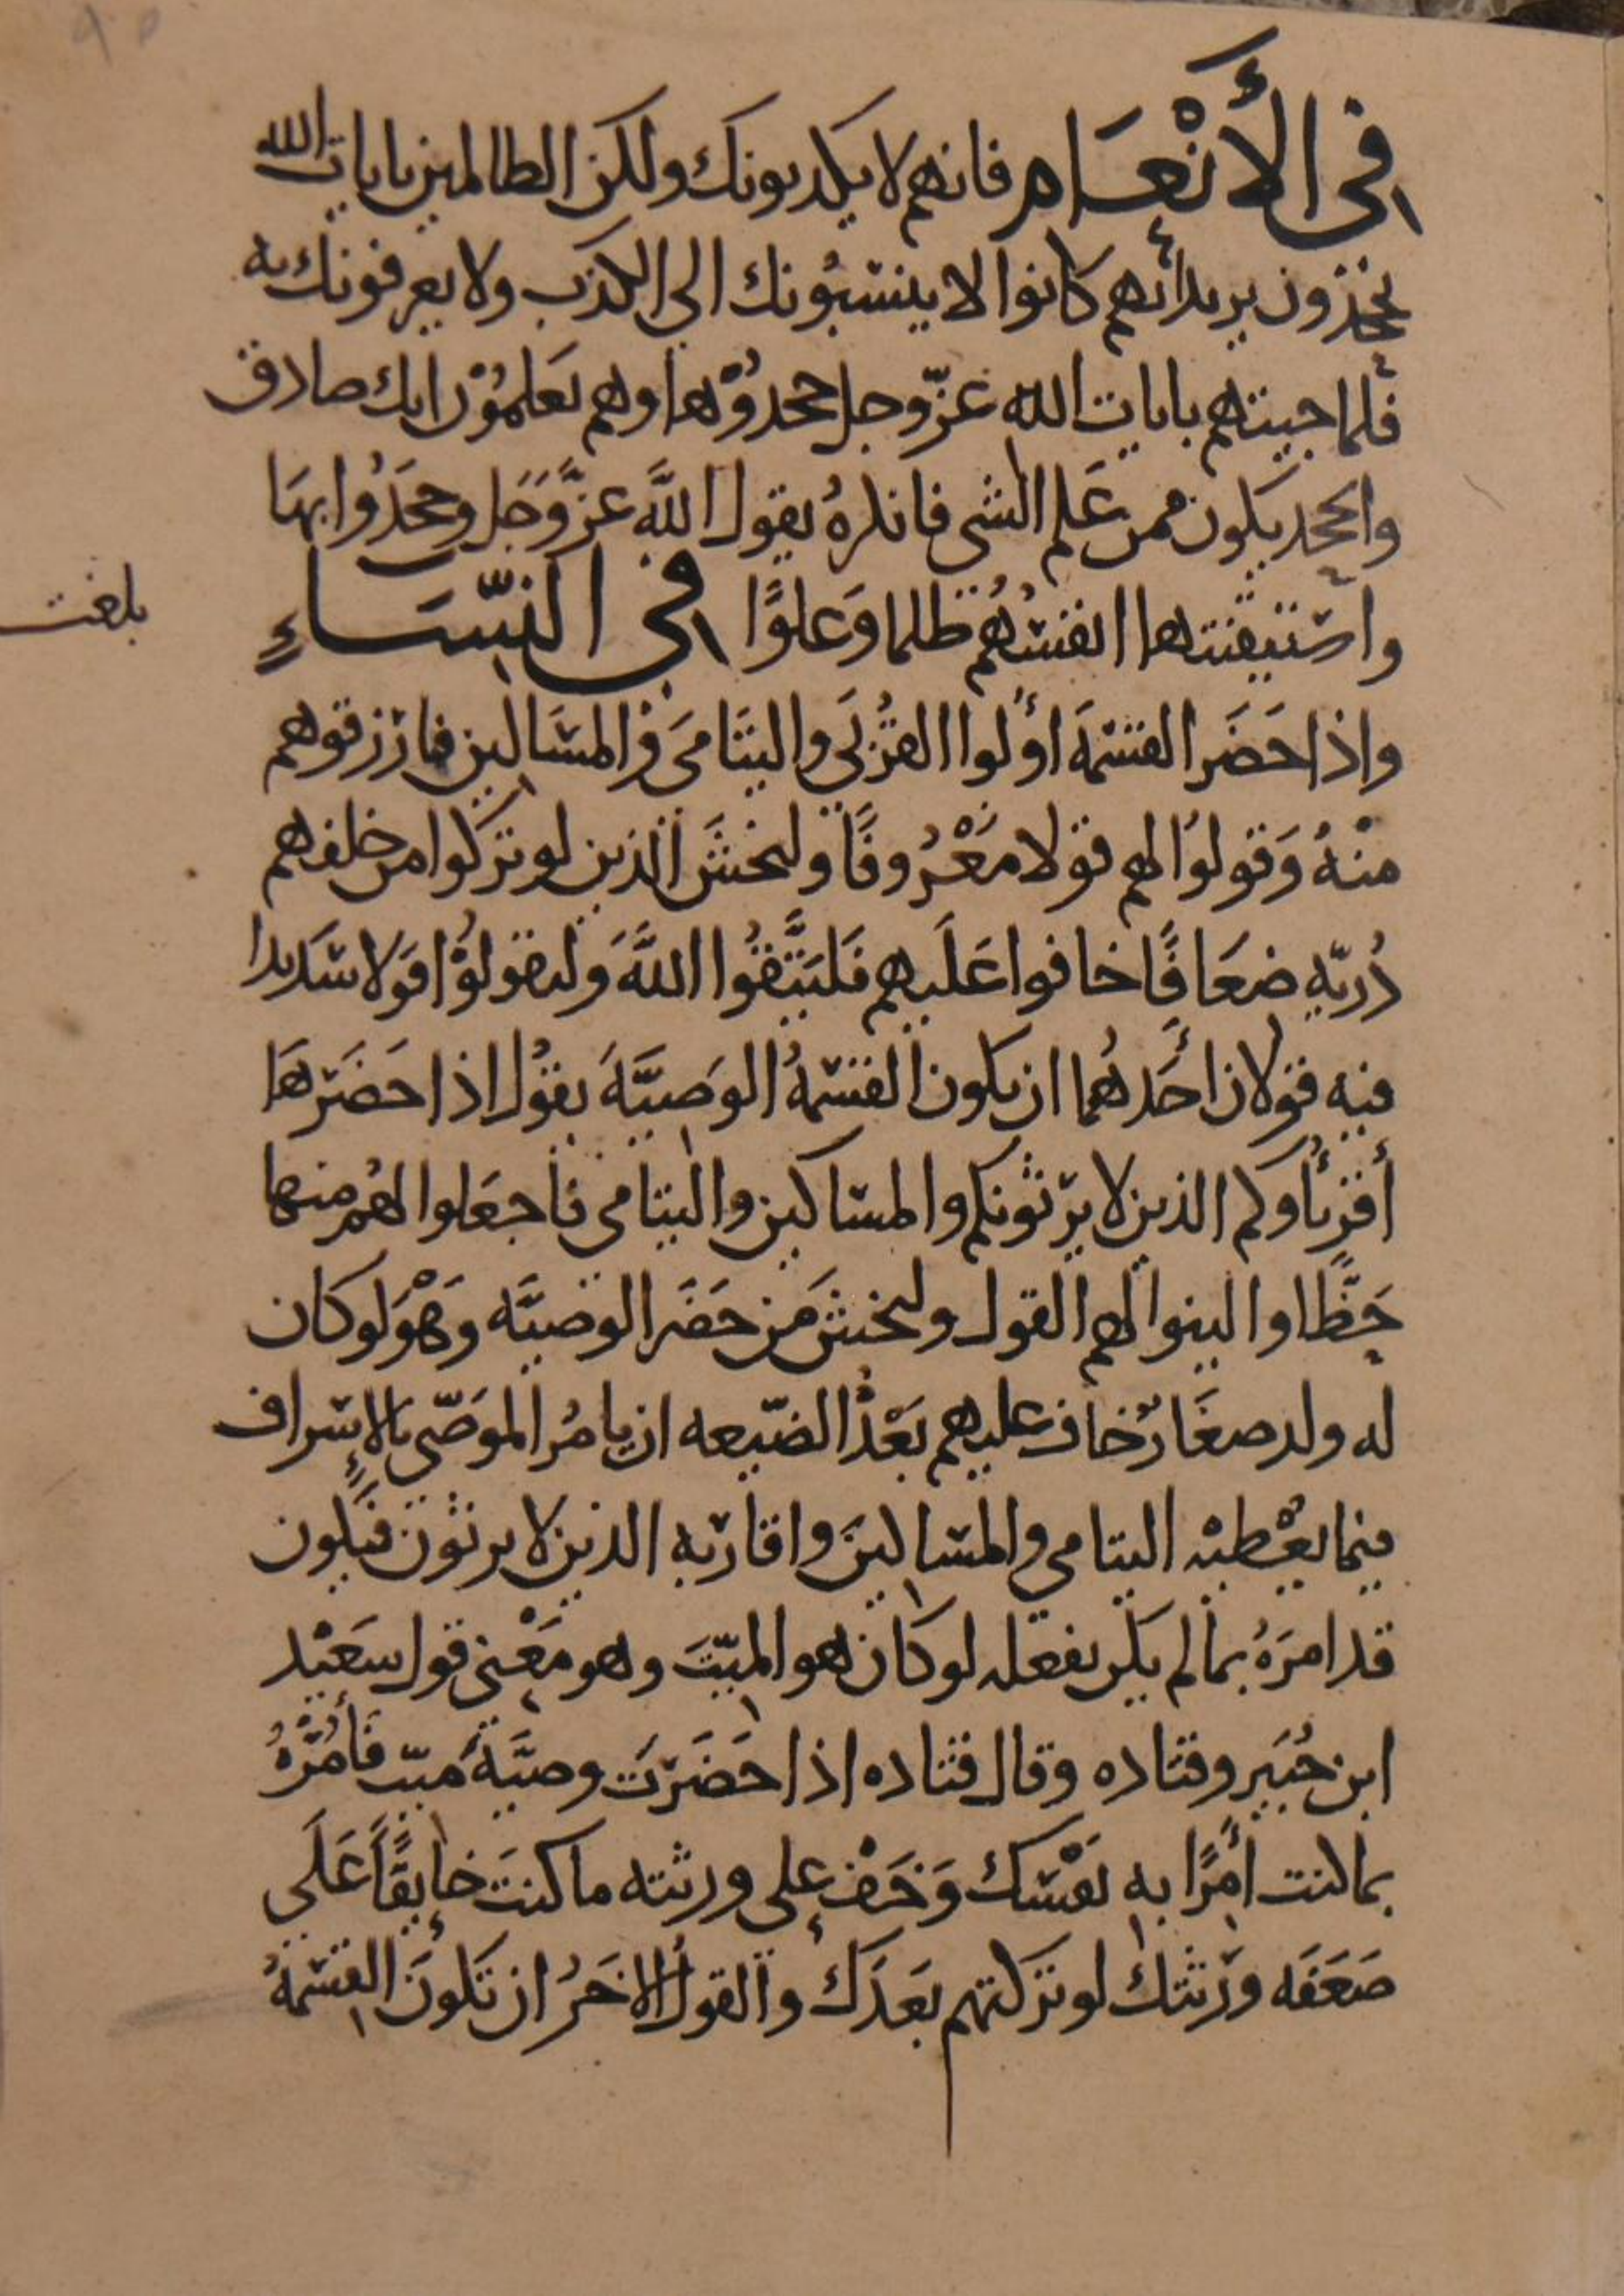 في الأنْعَام فانهم لا يكذبونك ولكن الظالمين بايات الله
يجحدون يريد انهم كانوا لا ينسبُونك الى الكذب ولا يعرفونك به
فلما جيتهم بايات الله عزّ وجل جحدوْها وهم يَعلمُوْن انك صادق
والجحد يكون ممن عَلم الشى فانكرهُ يقول اللَّه عزَّ وَجَل وجحَدُوا بهَا
واستيقنتها انفسُهُم ظلما وَعلوًّا في النِّسَاءِ
واذا حَضَر القسْمَة أولوا القُرْبَى واليتَامَى وَالمسَاكين فارْزقوهم
منْهُ وَقولوُا لهم قولا مَعْرُوفًا وليخشَ الذين لو تركوا من خلفهم
ذُريّةٍ ضعَافًا خافوا عَلَيهم فَليَتَّقُوا اللَّهَ وَليقولوْا قَولا سَديدا
فيه قولان أحَدهُما ان يكون القسْمةُ الوَصيَّةَ يقوُل اذا حَضَرَهَا
أقربأُوكم الذين لا يرثونكم والمساكين واليتامى فاجعَلوا لهُم منها
حَظًّا والينوا لهم القول وليخش مَن حَضَر الوصيَّه وَهْوَ لو كان
له ولد صغَارٌ خاف عليهم بَعْدُ الضّيعه ان يامُر الموَصّي بالإسراف
فيما يعْطيْه اليتامى والمساكينَ واقاربه الذين لا يرثون فيكون
قد امرَهُ بما لم يكن يفعله لو كان هو الميّتَ وهو مَعْنى قول سعَيْد
ابن جُبَير وقتاده وقال قتاده اذا حَضَرتَ وصيَّةَ ميّت فأمُرْهُ
بما كنت أمرًا به نفْسَك وَخَفْ على ورثته ما كنتَ خايفًا عَلَى
ضعَفَه ورَثتك لو تركتهم بعَدَك والقولُ الاخَرُ ان تكونَ القسْمةُ
بلغت